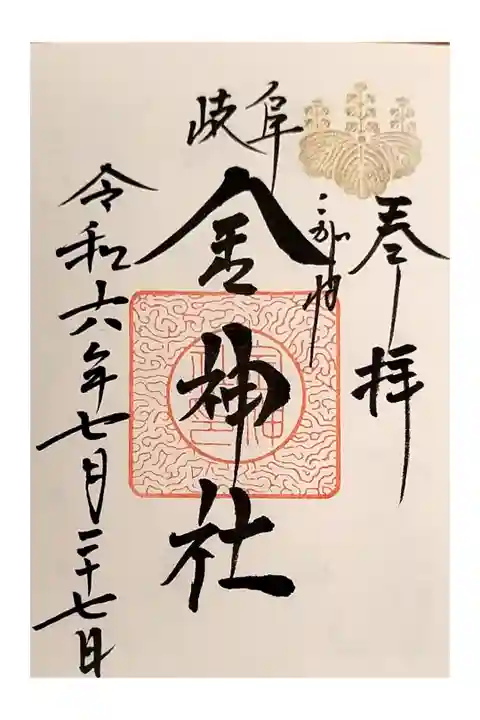 奉拝
岐阜
金神社
こがね
令和六年七月二十七日